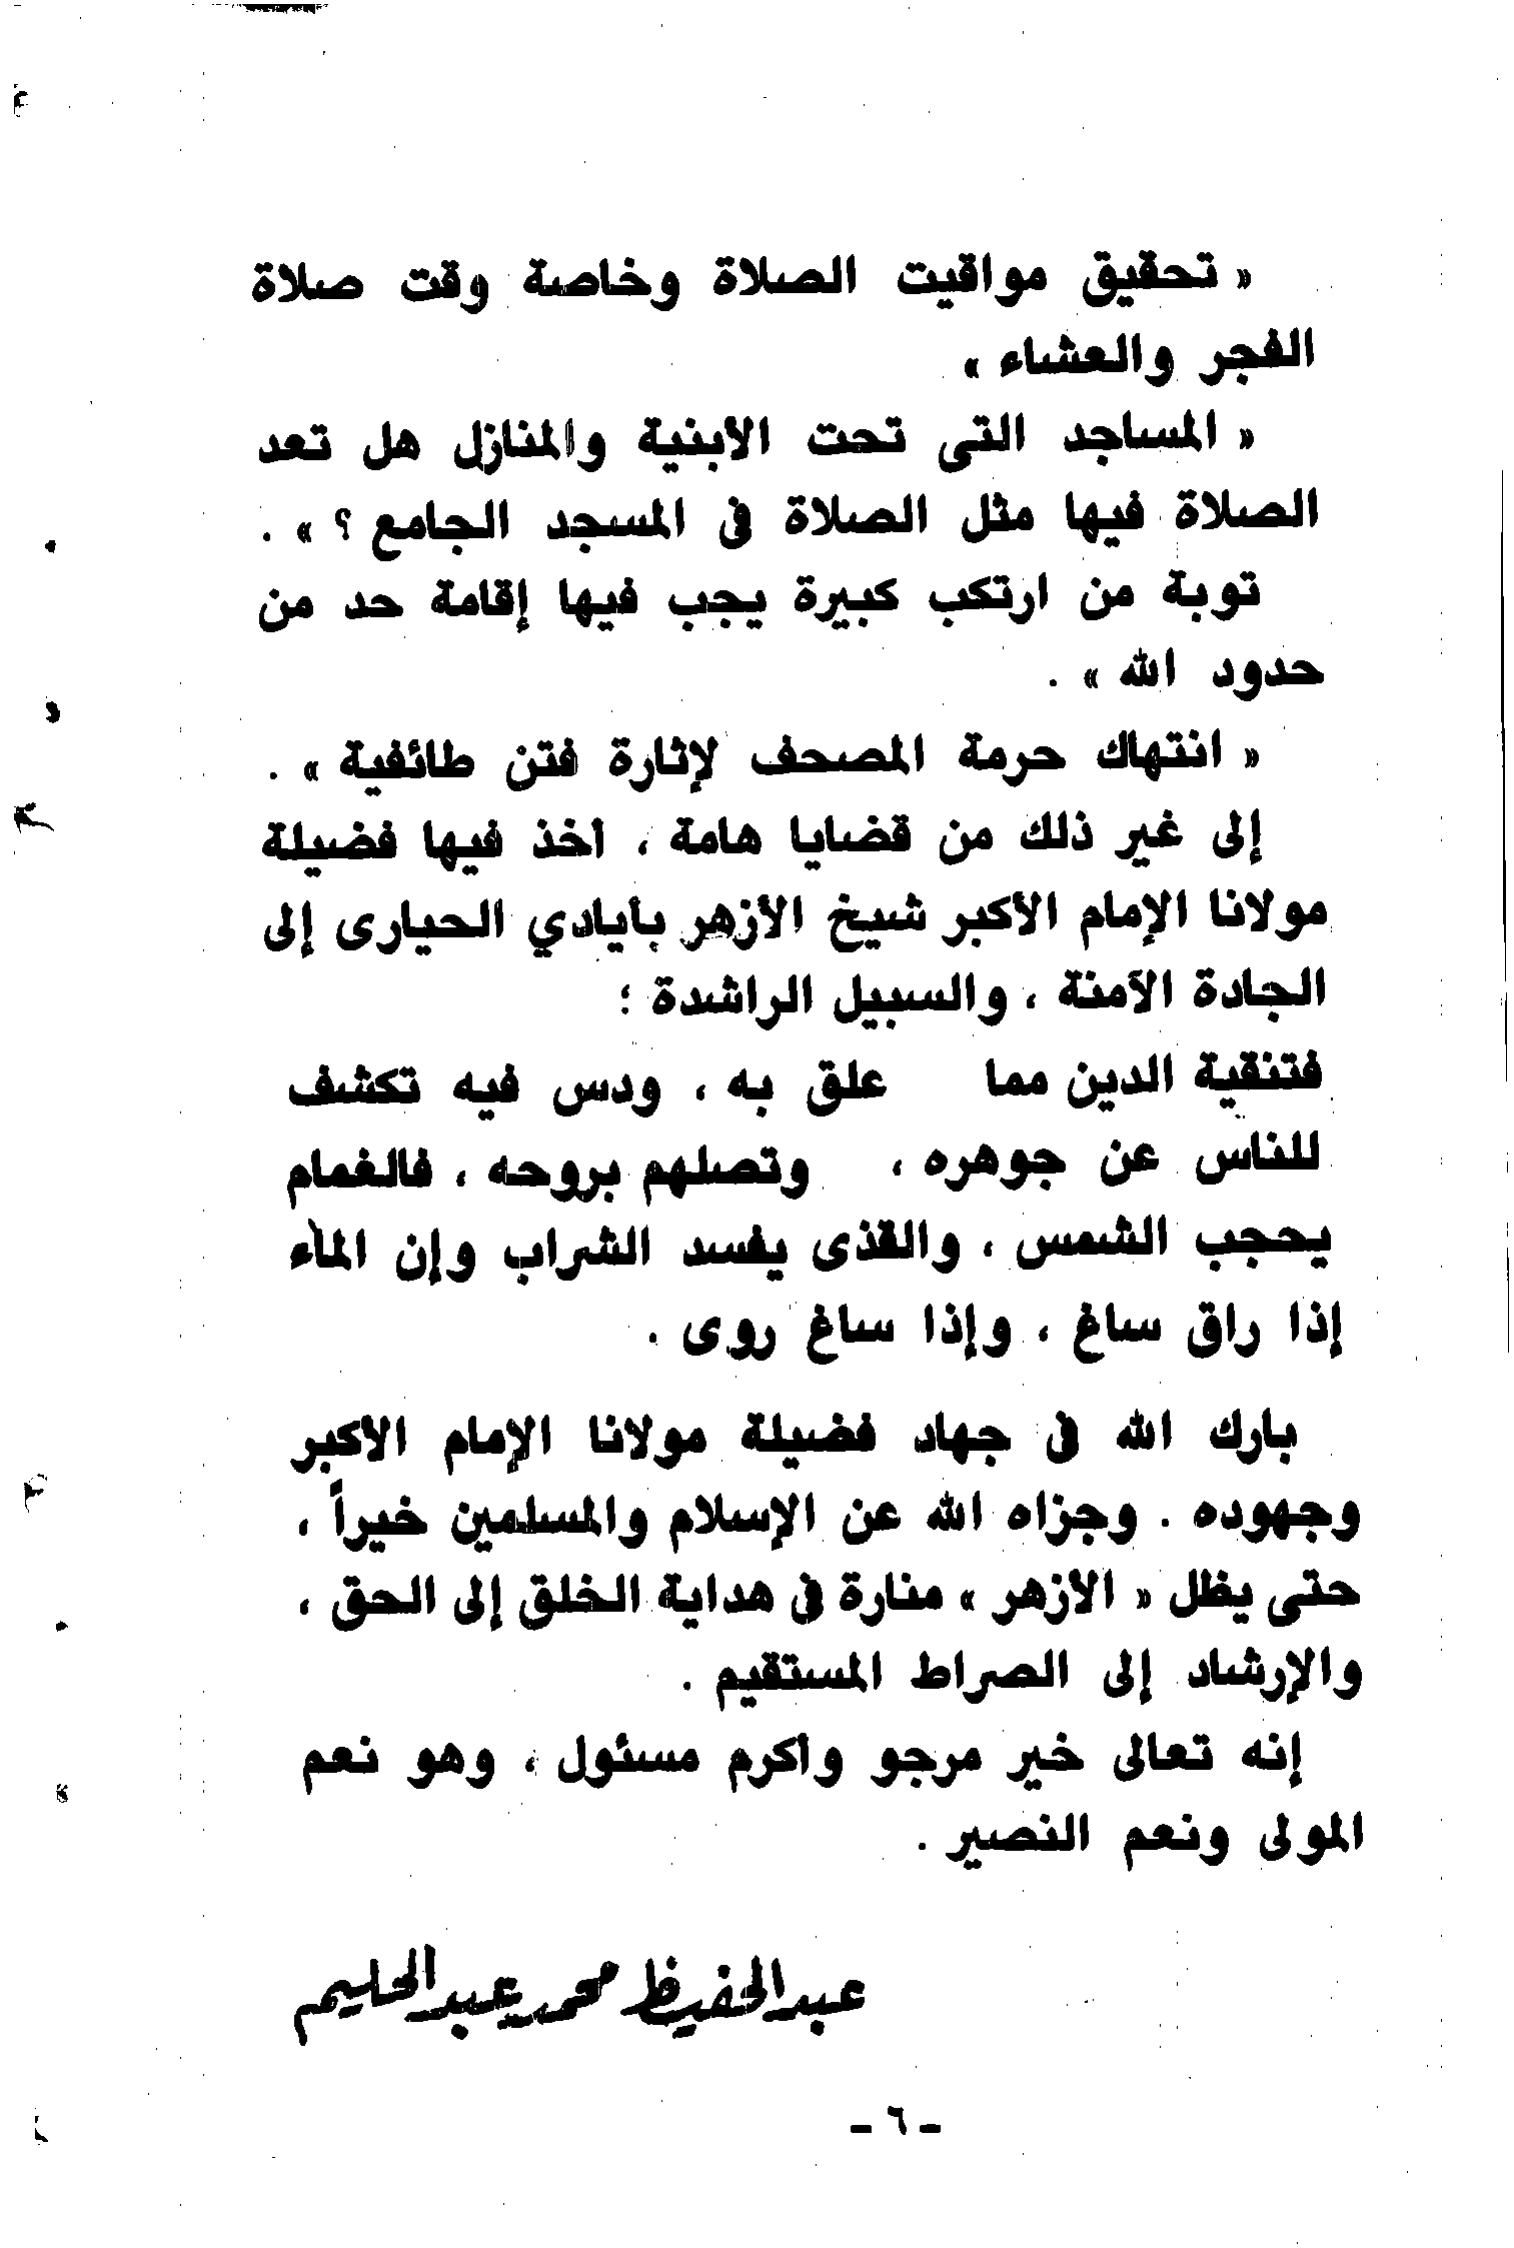 « تحقيق مواقيت الصلاة وخاصة وقت صلاة
الفجر والعشاء »
« المساجد التى تحت الأبنية والمنازل هل تعد
الصلاة فيها مثل الصلاة فى المسجد الجامع ؟ » .
توبة من ارتكب كبيرة يجب فيها إقامة حد من
حدود الله » .
« انتهاك حرمة المصحف لإثارة فتن طائفية » .
إلى غير ذلك من قضايا هامة ، أخذ فيها فضيلة
مولانا الإمام الأكبر شيخ الأزهر بأيادي الحيارى إلى
الجادة الآمنة ، والسبيل الراشدة ؛
فتنقية الدين مما علق به ، ودس فيه تكشف
للناس عن جوهره ، وتصلهم بروحه ، فالغمام
يحجب الشمس ، والقذى يفسد الشراب وإن الماء
إذا راق ساغ ، وإذا ساغ روى .
بارك الله فى جهاد فضيلة مولانا الإمام الأكبر
وجهوده . وجزاه الله عن الإسلام والمسلمين خيراً ،
حتى يظل « الأزهر » منارة فى هداية الخلق إلى الحق ،
والإرشاد إلى الصراط المستقيم .
إنه تعالى خير مرجو وأكرم مسئول ، وهو نعم
المولى ونعم النصير .
عبد الحفيظ محمد عبد الحليم
- ٦ -